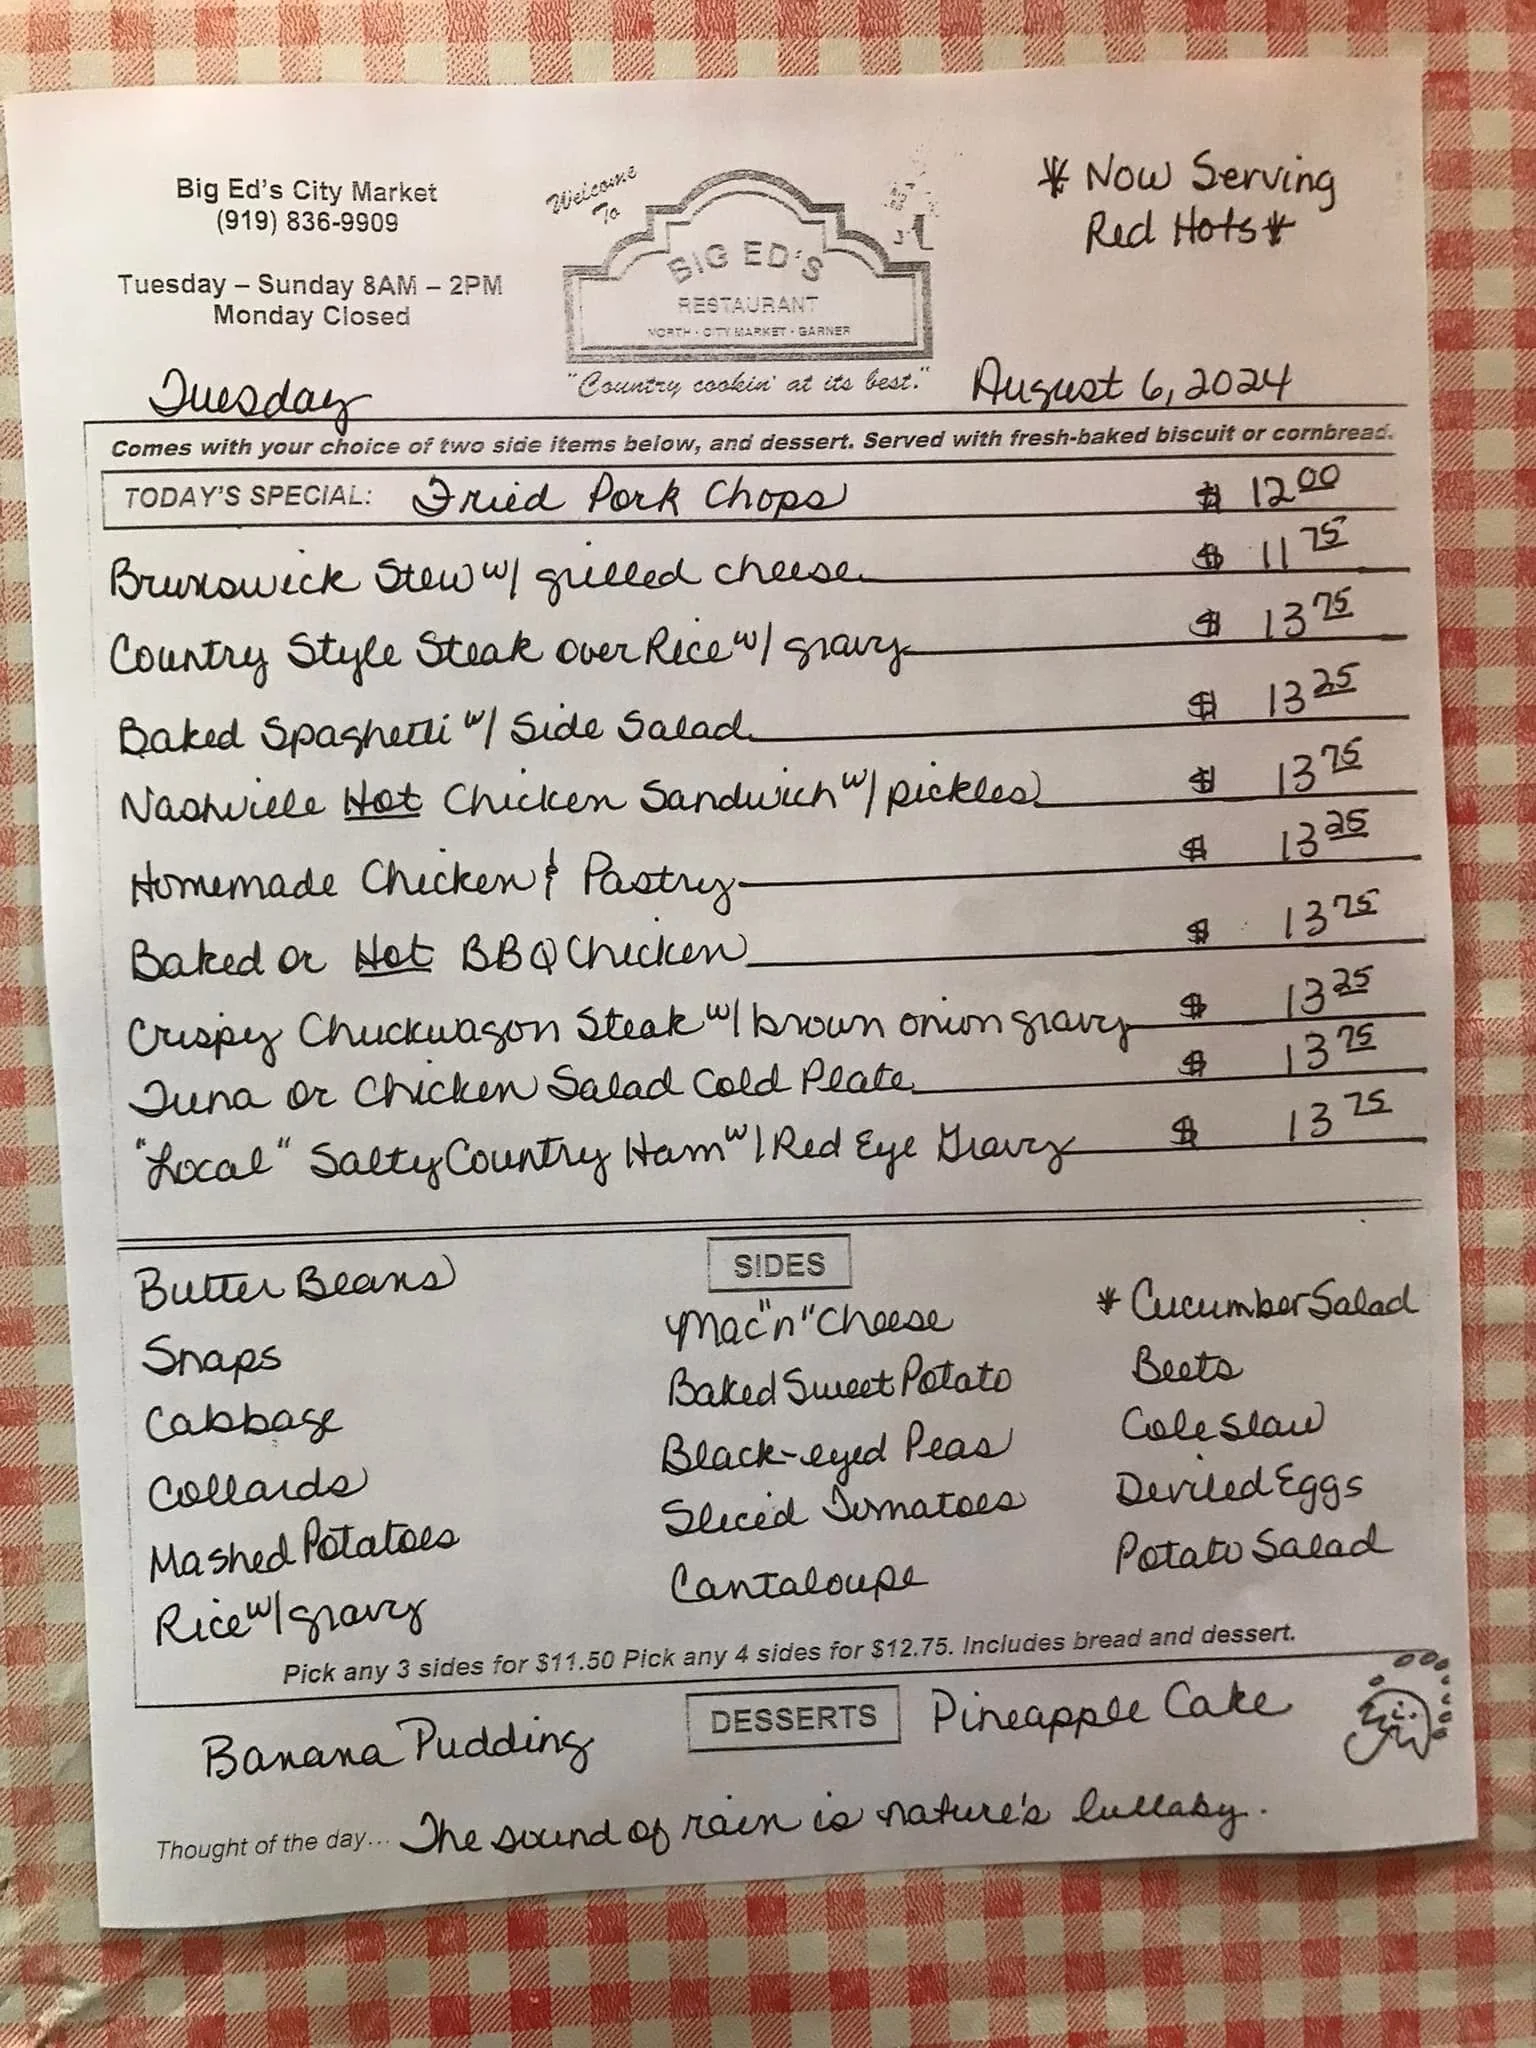 Big Ed's City Market
(919) 836-9909
Tuesday – Sunday 8AM – 2PM
Monday Closed
Welcome
To
BIG ED'S
RESTAURANT
NORTH - CITY MARKET - GARNER
"Country cookin' at its best."
* Now Serving
Red Hots *
Tuesday
August 6, 2024
Comes with your choice of two side items below, and dessert. Served with fresh-baked biscuit or cornbread.
TODAY'S SPECIAL: Fried Pork Chops $ 12 00
Brunswick Stew w/ grilled cheese $ 11 75
Country Style Steak over Rice w/ gravy $ 13 75
Baked Spaghetti w/ Side Salad $ 13 25
Nashville Hot Chicken Sandwich w/ pickles $ 13 75
Homemade Chicken & Pastry $ 13 25
Baked or Hot BBQ Chicken $ 13 75
Crispy Chuckwagon Steak w/ brown onion gravy $ 13 25
Tuna or Chicken Salad Cold Plate $ 13 75
"Local" Salty Country Ham w/ Red Eye Gravy $ 13 75
SIDES
Butter Beans
Snaps
Cabbage
Collards
Mashed Potatoes
Rice w/ gravy
Mac "n" Cheese
Baked Sweet Potato
Black-eyed Peas
Sliced Tomatoes
Cantaloupe
* Cucumber Salad
Beets
Cole Slaw
Deviled Eggs
Potato Salad
Pick any 3 sides for $11.50 Pick any 4 sides for $12.75. Includes bread and dessert.
DESSERTS
Banana Pudding
Pineapple Cake
Thought of the day... The sound of rain is nature's lullaby.